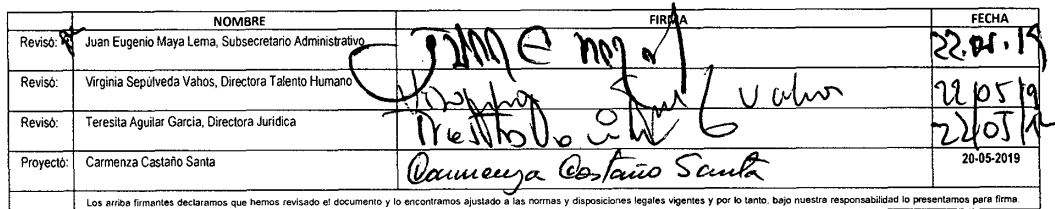 NOMBRE FIRMA FECHA
Revisó: Juan Eugenio Maya Lema, Subsecretario Administrativo
Revisó: Virginia Sepúlveda Vahos, Directora Talento Humano Vahos 22/05/19
Revisó: Teresita Aguilar Garcia, Directora Jurídica
Proyectó: Carmenza Castaño Santa Carmenza Castaño Santa 20-05-2019
Los arriba firmantes declaramos que hemos revisado el documento y lo encontramos ajustado a las normas y disposiciones legales vigentes y por lo tanto, bajo nuestra responsabilidad lo presentamos para firma.